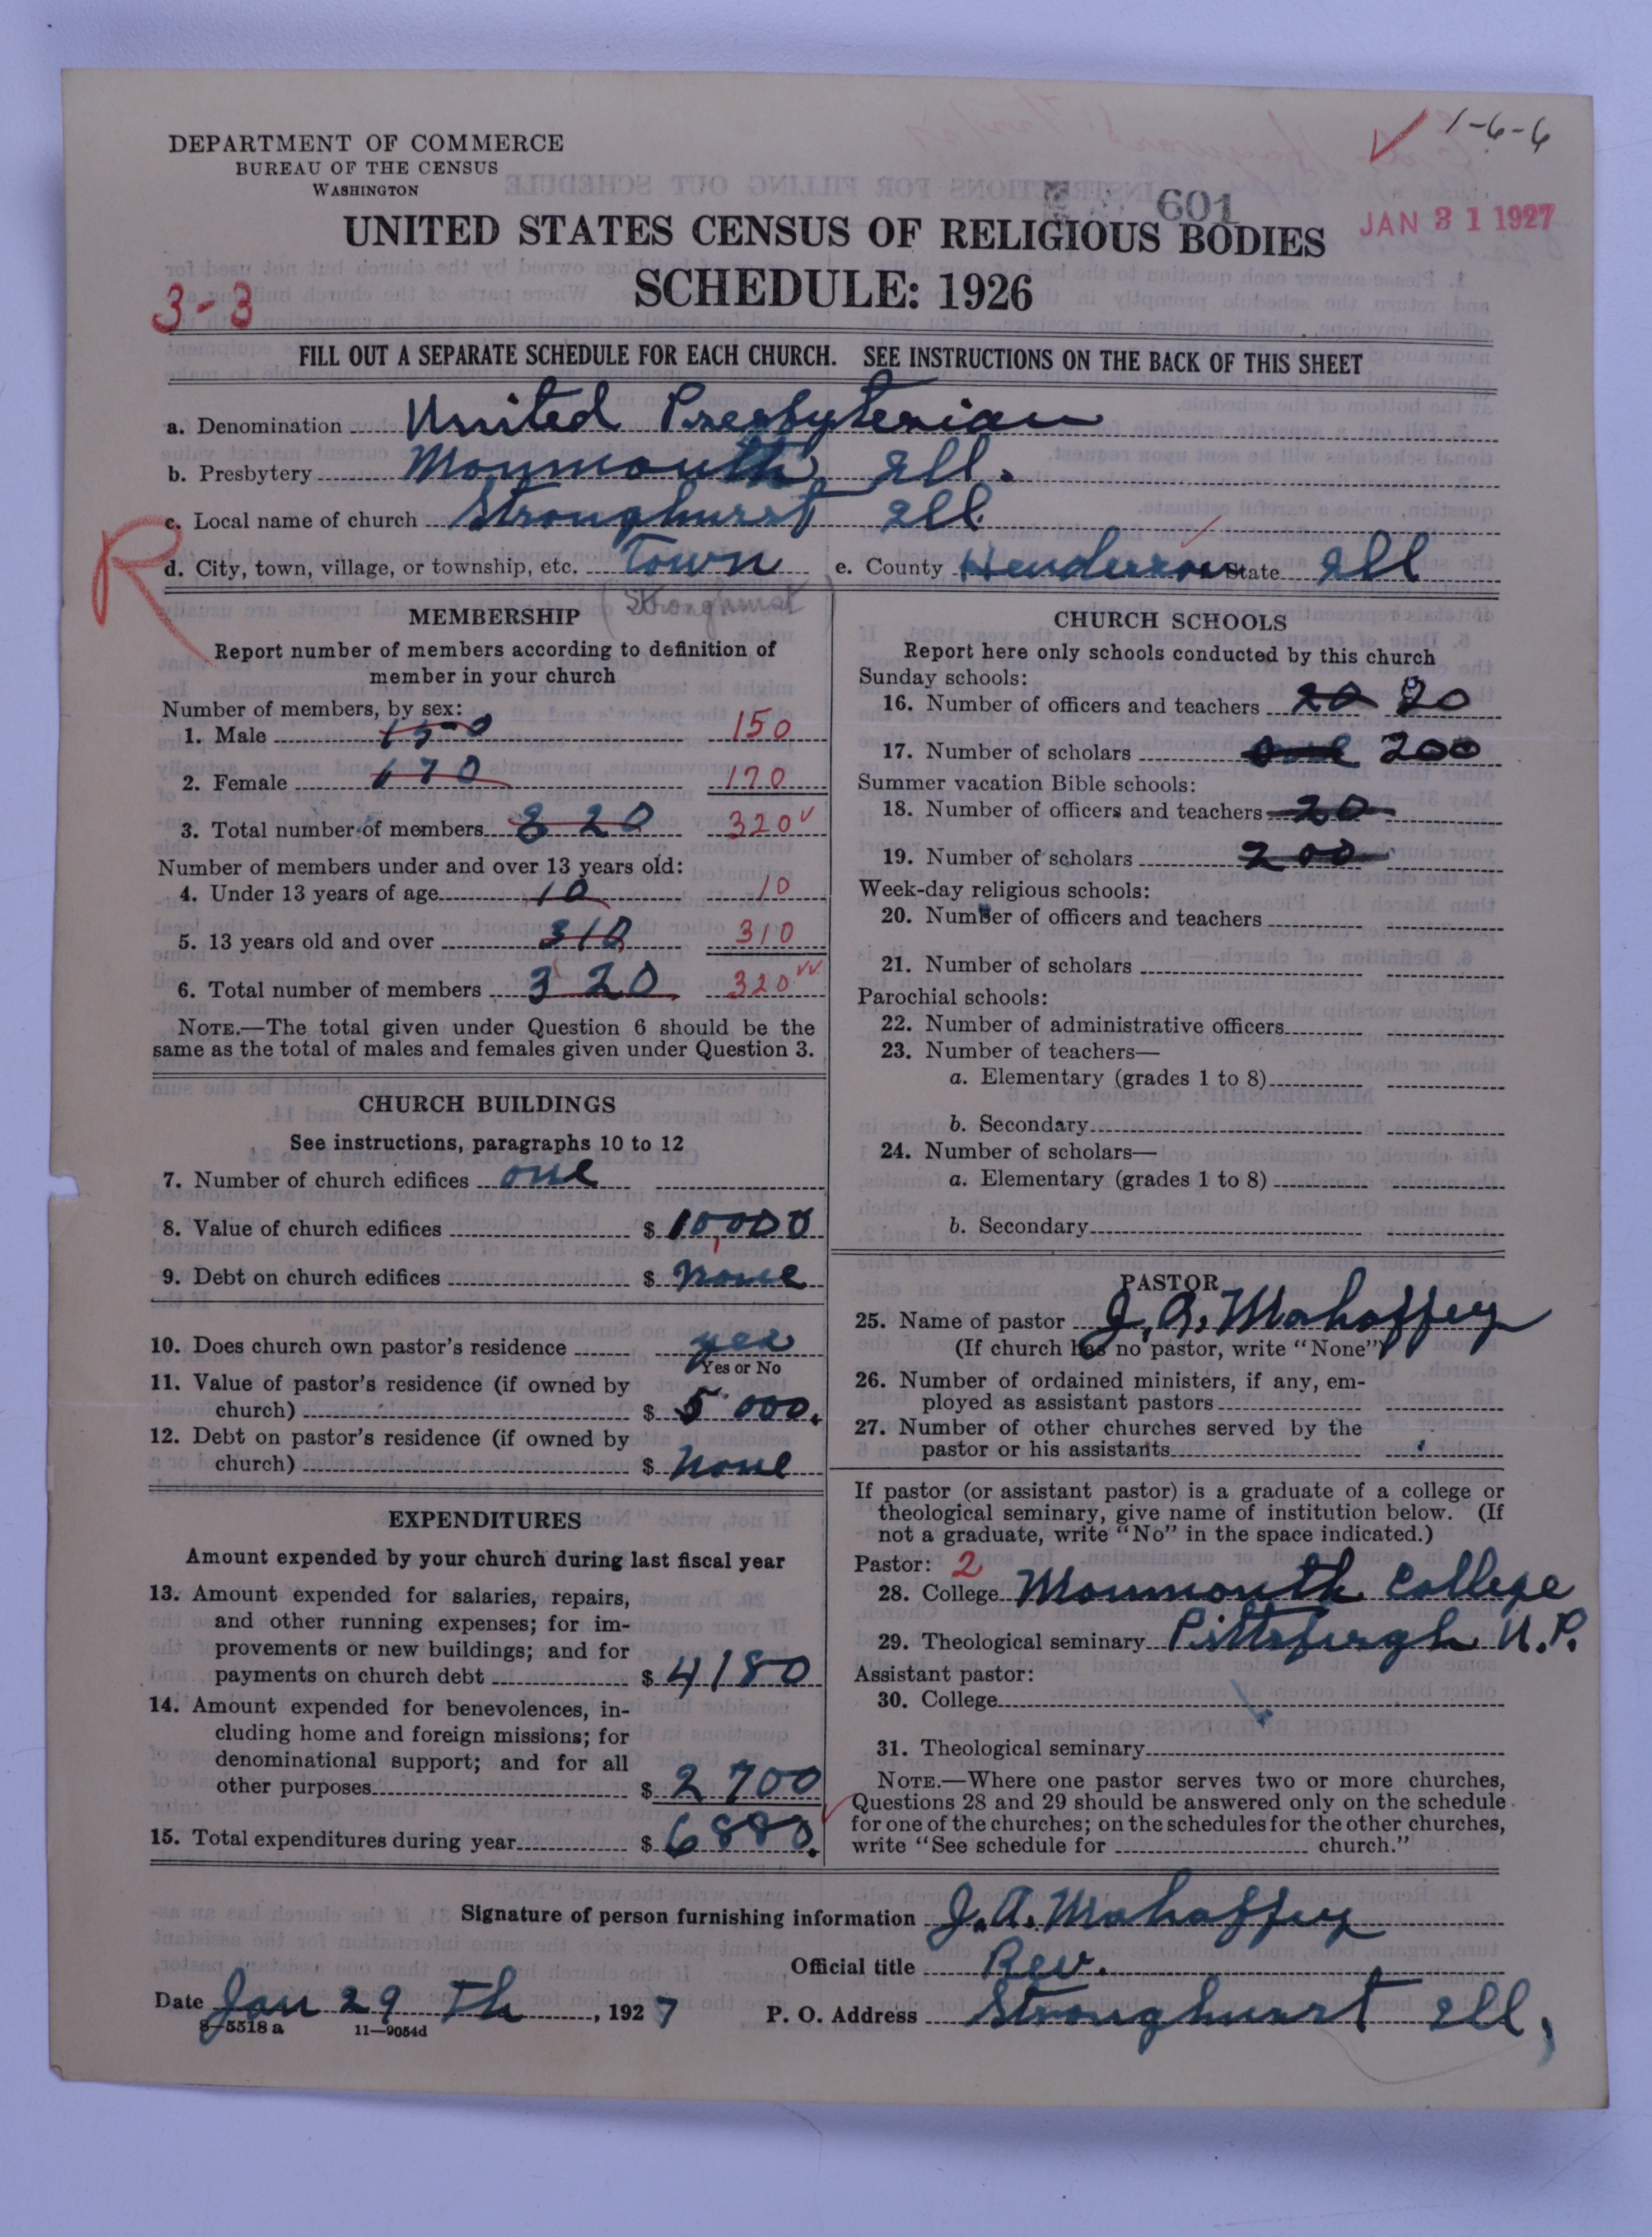 1-6-6
DEPARTMENT OF COMMERCE
BUREAU OF THE CENSUS
WASHINGTON
601
JAN 31 1927
UNITED STATES CENSUS OF RELIGIOUS BODIES
SCHEDULE: 1926
3-3
FILL OUT A SEPARATE SCHEDULE FOR EACH CHURCH. SEE INSTRUCTIONS ON THE BACK OF THIS SHEET
a. Denomination United Presbyterian
b. Presbytery Monmouth Ill.
c. Local name of church Stronghurst Ill.
R
d. City, town, village, or township, etc. Town e. County Henderson State Ill
(Stronghurst)
MEMBERSHIP
Report number of members according to definition of
member in your church
Number of members, by sex:
1. Male 150 150
2. Female 170 170
3. Total number of members 320 320
Number of members under and over 13 years old:
4. Under 13 years of age 10 10
5. 13 years old and over 310 310
6. Total number of members 320 320
NOTE.—The total given under Question 6 should be the
same as the total of males and females given under Question 3.
CHURCH BUILDINGS
See instructions, paragraphs 10 to 12
7. Number of church edifices one
8. Value of church edifices $ 10,000
9. Debt on church edifices $ none
10. Does church own pastor's residence yes
Yes or No
11. Value of pastor's residence (if owned by
church) $ 5 000.
12. Debt on pastor's residence (if owned by
church) $ none
EXPENDITURES
Amount expended by your church during last fiscal year
13. Amount expended for salaries, repairs,
and other running expenses; for im-
provements or new buildings; and for
payments on church debt $ 4180
14. Amount expended for benevolences, in-
cluding home and foreign missions; for
denominational support; and for all
other purposes $ 2700
15. Total expenditures during year $ 6880.
CHURCH SCHOOLS
Report here only schools conducted by this church
Sunday schools:
16. Number of officers and teachers 20 20
17. Number of scholars 200
Summer vacation Bible schools:
18. Number of officers and teachers 20
19. Number of scholars 200
Week-day religious schools:
20. Number of officers and teachers
21. Number of scholars
Parochial schools:
22. Number of administrative officers
23. Number of teachers—
a. Elementary (grades 1 to 8)
b. Secondary
24. Number of scholars—
a. Elementary (grades 1 to 8)
b. Secondary
PASTOR
25. Name of pastor J. A. Mahaffey
(If church has no pastor, write "None")
26. Number of ordained ministers, if any, em-
ployed as assistant pastors
27. Number of other churches served by the
pastor or his assistants
If pastor (or assistant pastor) is a graduate of a college or
theological seminary, give name of institution below. (If
not a graduate, write "No" in the space indicated.)
Pastor: 2
28. College Monmouth College
29. Theological seminary Pittsburgh U.P.
Assistant pastor:
30. College
31. Theological seminary
NOTE.—Where one pastor serves two or more churches,
Questions 28 and 29 should be answered only on the schedule
for one of the churches; on the schedules for the other churches,
write "See schedule for church."
Signature of person furnishing information J. A. Mahaffey
Official title Rev.
Date Jan 29 Th, 1927 P. O. Address Stronghurst Ill,
8-5518 a 11—9054d